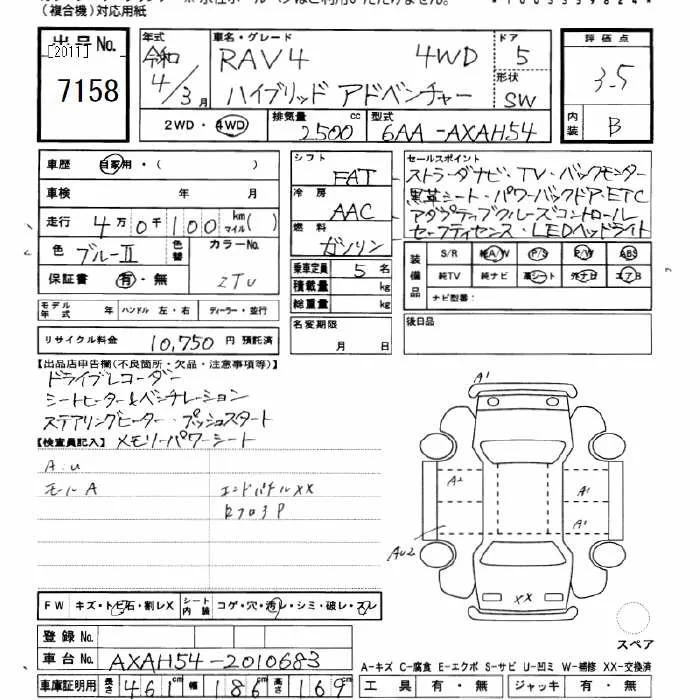 (複合機)対応用紙
出品No.
[2011]
7158
年式
令和
4/3月
車名・グレード
RAV4 4WD
ハイブリッド アドベンチャー
ドア
5
形状
SW
評価点
3.5
内装
B
2WD・4WD
排気量
2500cc
型式
6AA-AXAH54
車歴 自家用・( )
車検 年 月
走行 4万0千100km マイル( )
色 ブルーⅡ 色替
カラーNo.
ZTU
保証書 有・無
モデル年式 年 ハンドル 左・右 ディーラー・並行
リサイクル料金 10,750円 預託済
シフト
FAT
冷房
AAC
燃料
ガソリン
乗車定員 5名
積載量 kg
総重量 kg
名変期限
月 日
セールスポイント
ストラーダナビ・TV・バックモニター
黒革シート・パワーバックドア・ETC
アダプティブクルーズコントロール
セーフティセンス・LEDヘッドライト
装備品
S/R 純A/W P/S P/W ABS
純TV 純ナビ 革シート 外ナビ エアB
ナビ型番:
後日品
【出品店申告欄(不良箇所・欠品・注意事項等)】
ドライブレコーダー
シートヒーター&ベンチレーション
ステアリングヒーター・プッシュスタート
【検査員記入】メモリーパワーシート
A.U
モールA
エンドパネルXX
A1
A2
A1
A1
AU2
XX
スペア
FW キズ・トビ石・割レX シート内装 コゲ・穴・汚レ・シミ・破レ・スレ
登録No.
車台No. AXAH54-2010683
車庫証明用 長さ 461cm 幅 186cm 高さ 169
A-キズ C-腐食 E-エクボ S-サビ U-凹ミ W-補修 XX-交換済
工具 有・無 ジャッキ 有・無